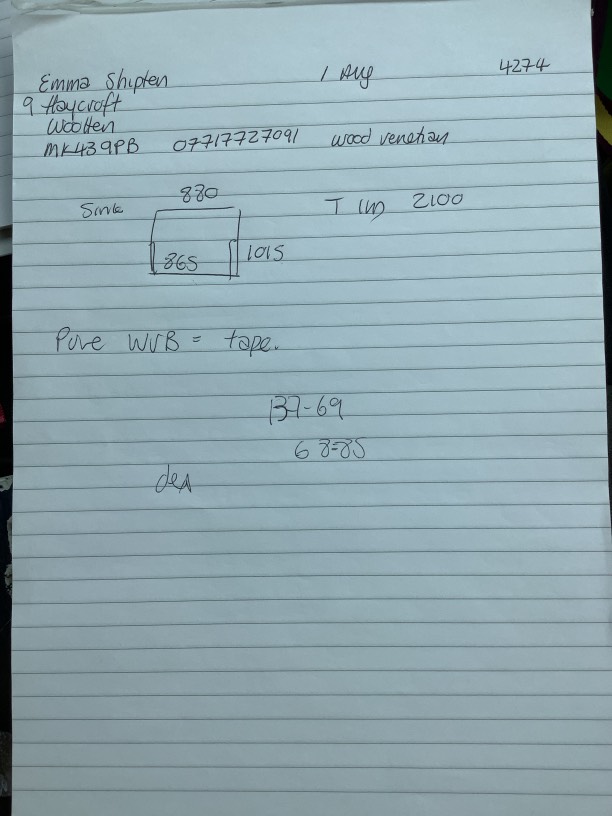 Emma Shipten 1 Aug 4274
9 Haycroft
Wootten
MK439PB 07717727091 wood venetian
880
Sink T (W) 2100
865 1015
Pure WVB = tape.
137-69
68=85